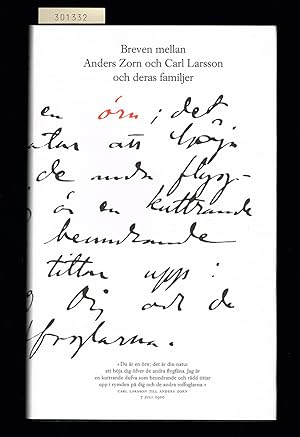 301332
Breven mellan
Anders Zorn och Carl Larsson
och deras familjer
en örn; det
atur att höja
de andra flyg-
är en kuttrande
beundrande
tittar upp i
Dig och de
offoglarna.
»Du är en örn; det är din natur
att höja dig öfver de andra flygfäna. Jag är
en kuttrande dufva som beundrande och rädd tittar
upp i rymden på dig och de andra roffoglarna.«
CARL LARSSON TILL ANDERS ZORN
7 JULI